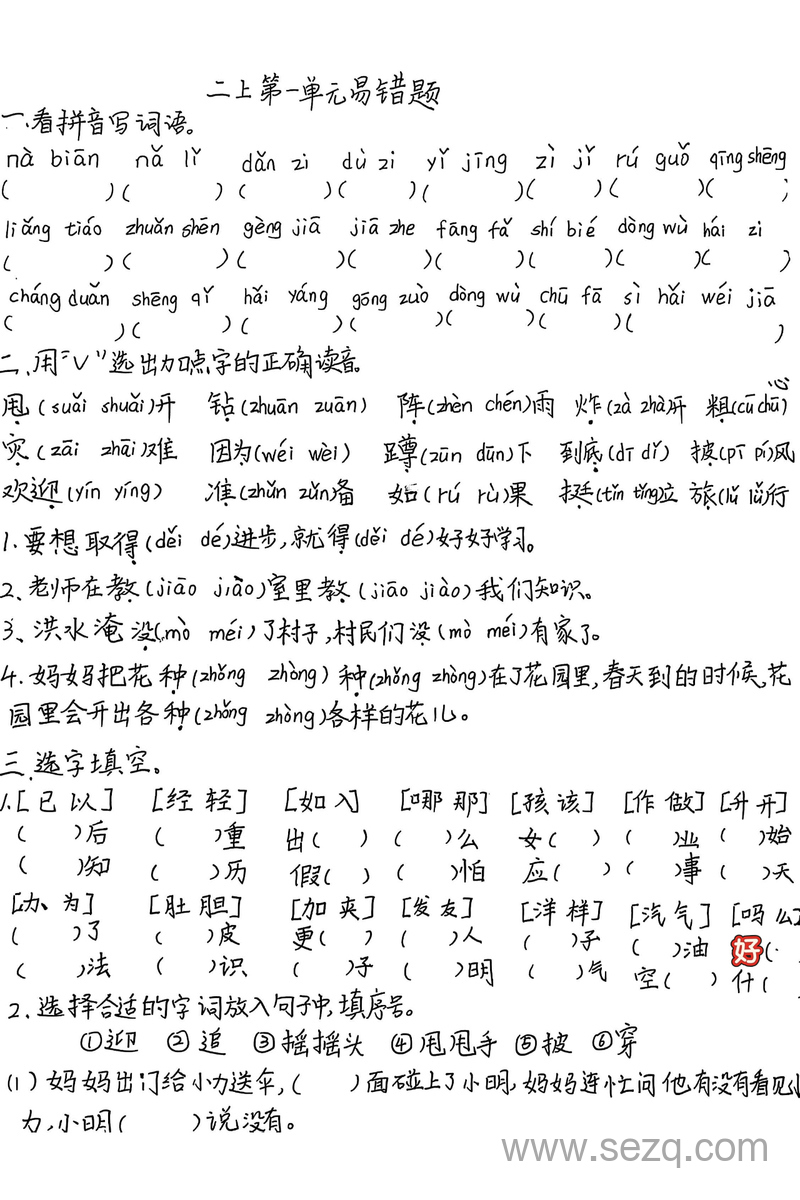 二上第一单元易错题
一、看拼音写词语。
nà biān nǎ lǐ dǎn zi dù zi yǐ jīng zì jǐ rú guǒ qīng shēng
( )( )( )( )( )( )( )( )
liǎng tiáo zhuǎn shēn gèng jiā jiā zhe fāng fǎ shí bié dòng wù hái zi
( )( )( )( )( )( )( )( )
cháng duǎn shēng qì hǎi yáng gōng zuò dòng wù chū fā sì hǎi wéi jiā
( )( )( )( )( )( )( )
二、用“√”选出加点字的正确读音
甩(suǎi shuǎi)开 钻(zhuān zuān) 阵(zhèn chén)雨 炸(zà zhà)开 粗(cū chū)心
灾(zāi zhāi)难 因为(wéi wèi) 蹲(zūn dūn)下 到底(dī dǐ) 披(pī pí)风
欢迎(yín yíng) 准(zhǔn zǔn)备 如(rú rù)果 挺(tǐn tǐng)立 旅(lǚ lǔ)行
1.要想取得(děi dé)进步,就得(děi dé)好好学习。
2、老师在教(jiāo jiào)室里教(jiāo jiào)我们知识。
3、洪水淹没(mò méi)了村子,村民们没(mò méi)有家了。
4.妈妈把花种(zhǒng zhòng)种(zhǒng zhòng)在了花园里,春天到的时候,花
园里会开出各种(zhǒng zhòng)各样的花儿。
三、选字填空。
1.[已 以] [经 轻] [如 入] [哪 那] [孩 该] [作 做] [升 开]
( )后 ( )重 出( ) ( )么 女( ) ( )业 ( )始
( )知 ( )历 假( ) ( )怕 应( ) ( )事 ( )天
[办、为] [肚 胆] [加 夹] [发 友] [洋 样] [汽 气] [吗 么]
( )了 ( )皮 更( ) ( )人 ( )子 ( )油 好(
( )法 ( )识 ( )子 ( )明 ( )气 空( ) 什(
2.选择合适的字词放入句子中,填序号。
①迎 ②追 ③摇摇头 ④甩甩手 ⑤披 ⑥穿
(1)妈妈出门给小力送伞,( )面碰上了小明,妈妈连忙问他有没有看见小
力,小明( )说没有。
www.sezq.com